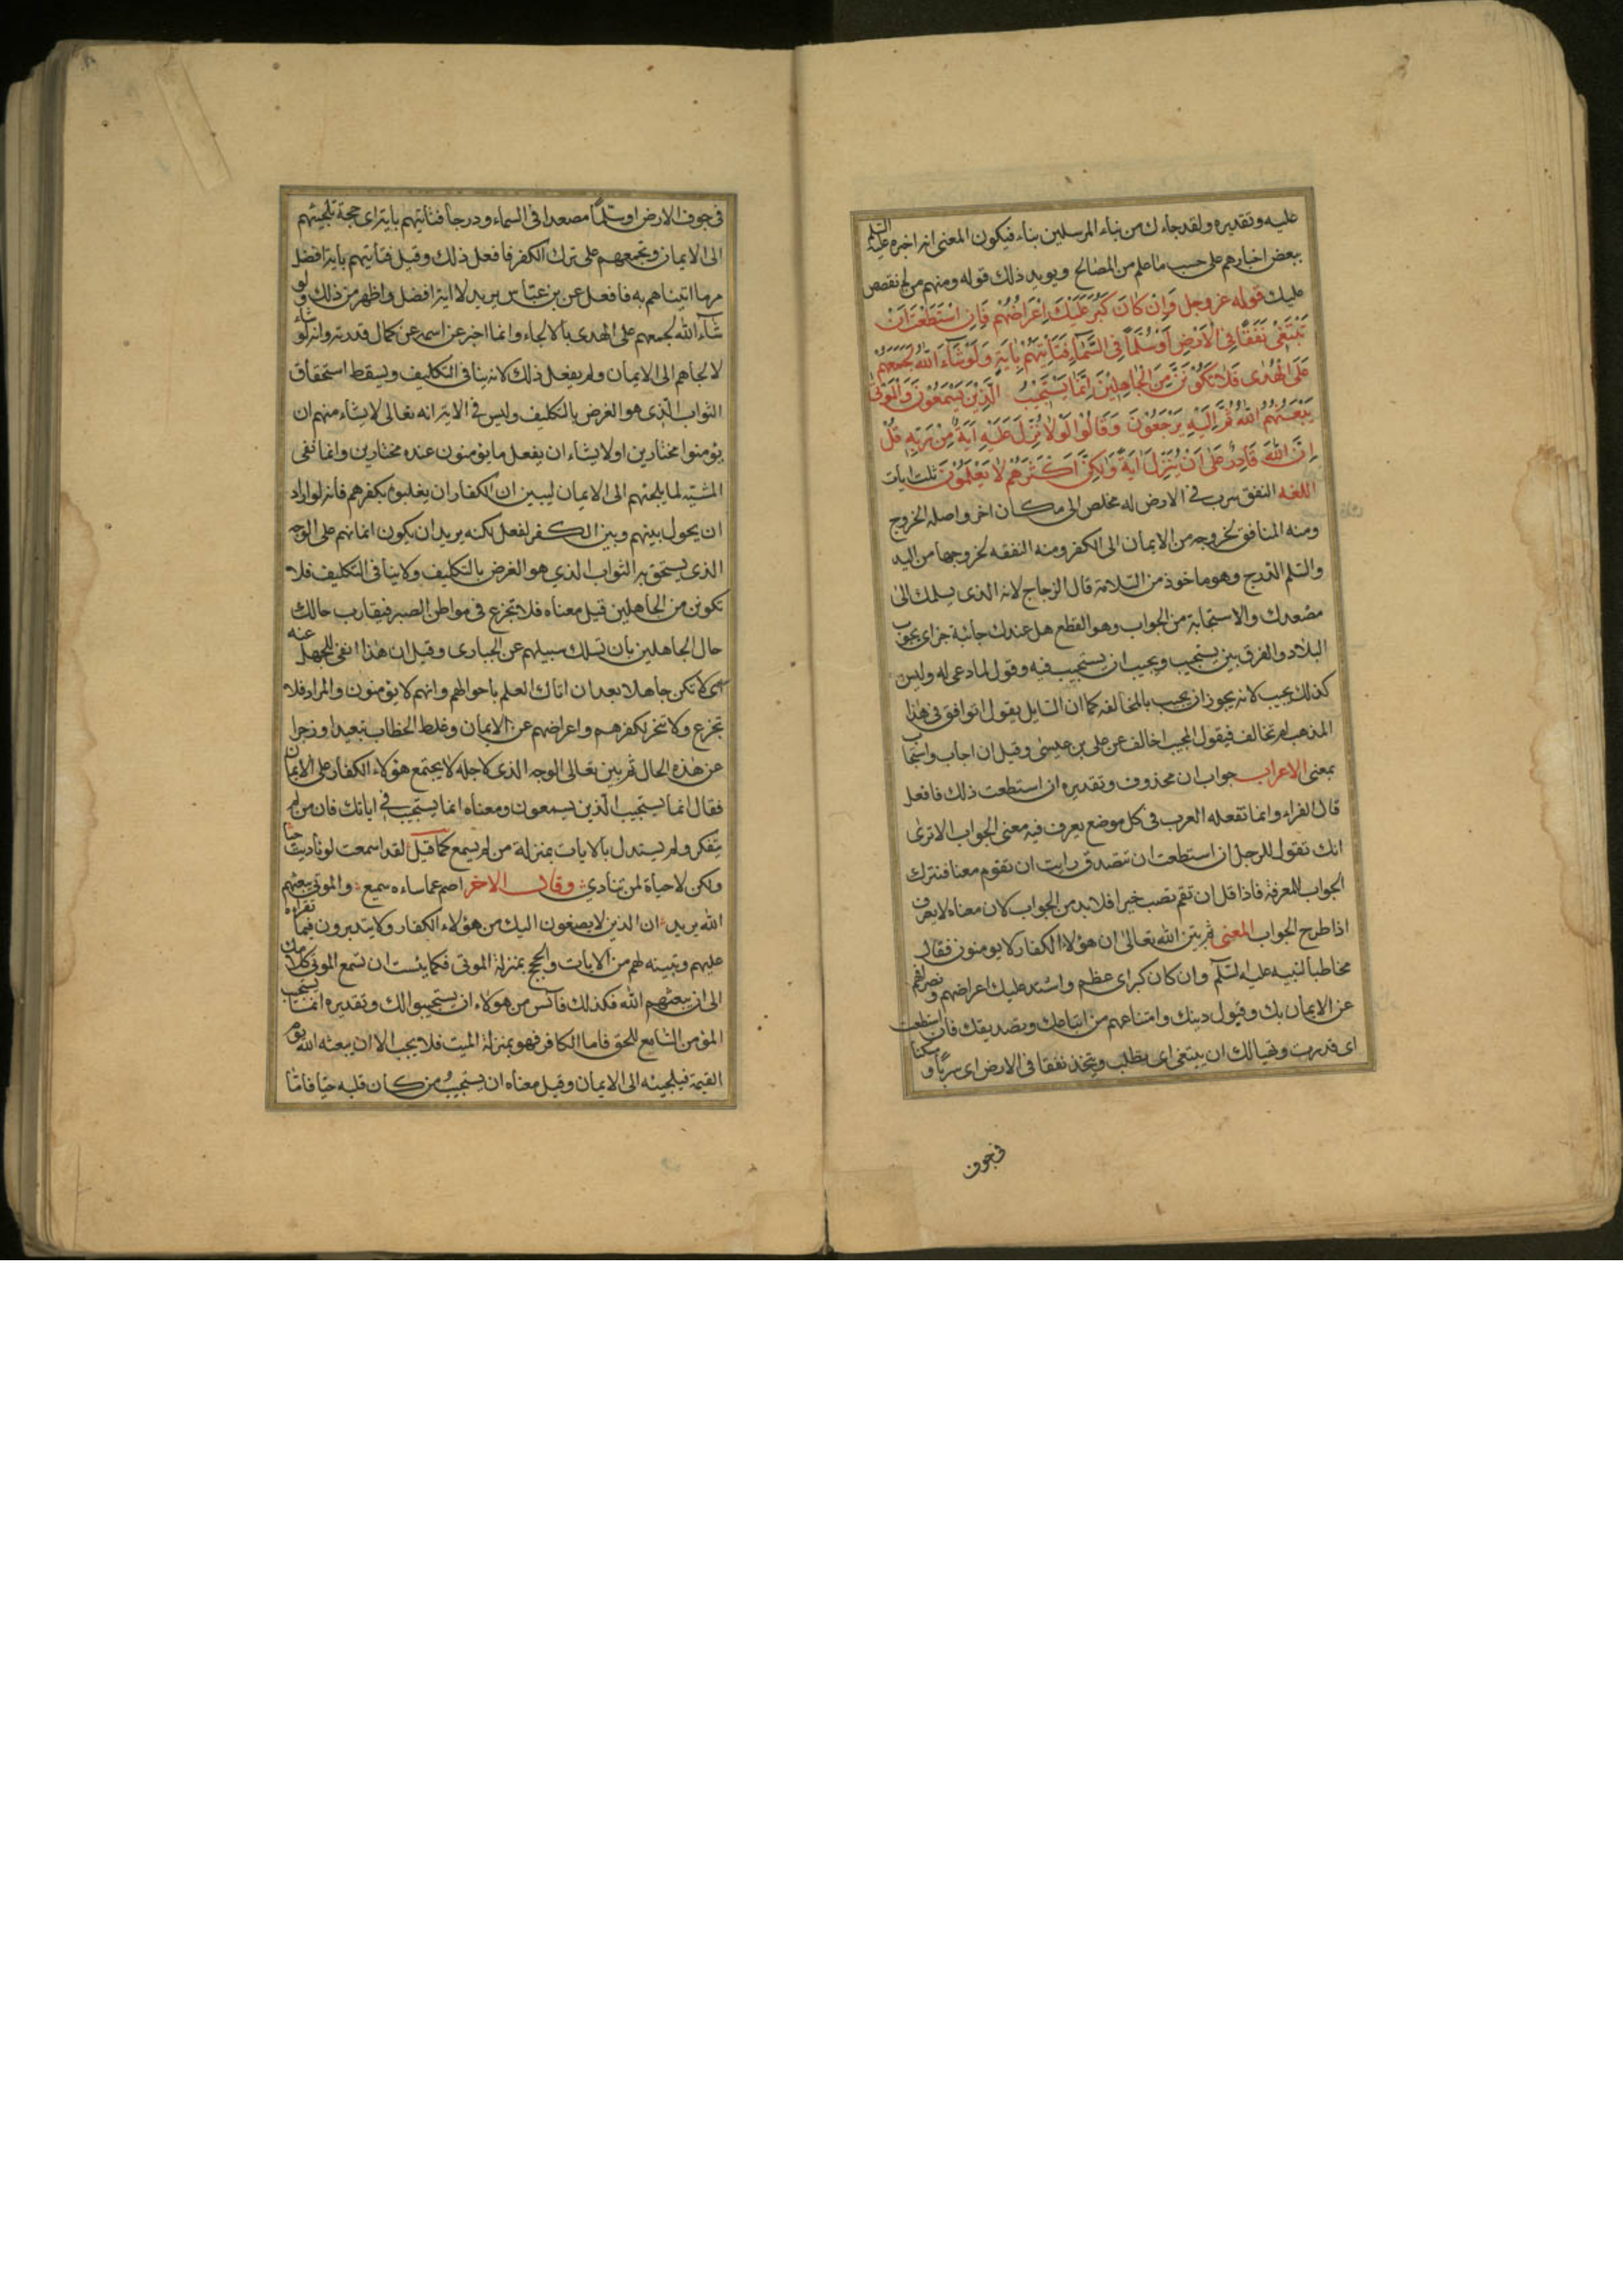 عليه وتقديره ولقد جاءك من نباء المرسلين بناء فيكون المعنى انه اخبره عليه السّلم
ببعض اخبارهم على حسب ما علم من المصالح ويويد ذلك قوله ومنهم من لم نقصص
عليك قوله عز وجل وَاِنْ كَانَ كَبُرَ عَلَيْكَ اِعْرَاضُهُمْ فَاِنِ اسْتَطَعْتَ اَنْ
تَبْتَغِىَ نَفَقًا فِى الْاَرْضِ اَوْ سُلَّمًا فِى السَّمَاءِ فَتَأْتِيَهُمْ بِاٰيَةٍ وَلَوْ شَاءَ اللّٰهُ لَجَمَعَهُمْ
عَلَى الْهُدٰى فَلَا تَكُوْنَنَّ مِنَ الْجَاهِلِيْنَ اِنَّمَا يَسْتَجِيْبُ الَّذِيْنَ يَسْمَعُوْنَ وَالْمَوْتٰى
يَبْعَثُهُمُ اللّٰهُ ثُمَّ اِلَيْهِ يُرْجَعُوْنَ وَقَالُوْا لَوْلَا نُزِّلَ عَلَيْهِ اٰيَةٌ مِنْ رَبِّهٖ قُلْ
اِنَّ اللّٰهَ قَادِرٌ عَلٰى اَنْ يُنَزِّلَ اٰيَةً وَلٰكِنَّ اَكْثَرَهُمْ لَا يَعْلَمُوْنَ ثلث ايات
اللغه النفق سرب فى الارض له مخلص الى مكان اخر واصله الخروج
ومنه المنافق لخروجه من الايمان الى الكفر ومنه النفقه لخروجها من اليد
والسّلم الدرج وهو ماخوذ من السّلامة قال الزجاج لانه الذى يسلمك الى
مصعدك والاستجابة من الجواب وهو القطع هل عندك جائبة خبر اى يجوب
البلاد والفرق بين يستجيب ويجيب ان يستجيب فيه وقول لما دعى له وليس
كذلك يجيب لانه يجوز ان يجيب بالمخالفه كما ان السّايل يقول اتوافق فى هذا
المذهب ام تخالف فيقول المجيب اخالف عن على بن عيسى وقيل ان اجاب واستجاب
بمعنى الاعراب جواب ان محذوف وتقديره ان استطعت ذلك فافعل
قال الفراء وانما تفعله العرب فى كل موضع يعرف فيه معنى الجواب الا ترى
انك تقول للرجل ان استطعت ان تتصدق رايت ان تقوم معنا فتترك
الجواب للمعرفة فاذا قل ان تقم تصب خيرا فلا بد من الجواب لان معناه لا يعرف
اذا طرح الجواب المعنى ثم بيّن الله تعالى ان هؤلا الكفار لا يومنون فقال
مخاطبا لنبيه عليه السّلم وان كان كبر اى عظم واشتد عليك اعراضهم وانصرافهم
عن الايمان بك وقبول دينك وامتناعهم من اتباعك وتصديقك فان استطعت
اى قدرت وتهيا لك ان تبتغى اى تطلب وتتخذ نفقا فى الارض اى سربًا ومسكنا
فى جوف
فى جوف الارض او سلّمًا مصعدا فى السماء ودرجا فتاتيهم باية اى حجة تلجئهم
الى الايمان وتجمعهم على ترك الكفر فافعل ذلك وقيل فتاتيهم باية افضل
مما اتيناهم به فافعل عن بن عبّاس يريد لا اية افضل واظهر من ذلك ولو
شاء الله لجمعهم على الهدى بالالجاء وانما اخبر عز اسمه عن كمال قدرته وانه لو شاء
لالجاهم الى الايمان ولم يفعل ذلك لانه ينافى التكليف ويسقط استحقاق
الثواب الّذى هو الغرض بالتكليف وليس فى الاية انه تعالى لا يشاء منهم ان
يؤمنوا مختارين او لا يشاء ان يفعل ما يؤمنون عنده مختارين وانما نفى
المشيّه لما يلجئهم الى الايمان ليبين ان الكفار ان يغلبوه بكفرهم فانه لو اراد
ان يحول بينهم وبين الكفر لفعل لكنه يريد ان يكون ايمانهم على الوجه
الذى يستحق به الثواب الذى هو الغرض بالتكليف ولا ينافى التكليف فلا
تكونن من الجاهلين قيل معناه فلا تجزع فى مواطن الصبر فيقارب حالك
حال الجاهلين بان تسلك سبيلهم عن الجبارى وقيل ان هذا نفى للجهل عنه
اى لا تكن جاهلا بعد ان اتاك العلم باحوالهم وانهم لا يؤمنون والمراد فلا
تجزع ولا تتحر لكفرهم واعراضهم عن الايمان وغلظ الخطاب تبعيدا وزجرا
عن هذه الحال ثم بين تعالى الوجه الذى لاجله لا يجتمع هؤلاء الكفار على الايمان
فقال انما يستجيب الّذين يسمعون ومعناه انما يستجيب فى اياتك فان من لم
يتفكر ولم يستدل بالايات بمنزلة من لم يسمع كما قيل لقد اسمعت لو ناديت حيّا
ولكن لا حياة لمن تنادى وقال الاخر اصم عما ساءه سميع والموتى يبعثهم
الله يريد ان الذين لا يصغون اليك من هؤلاء الكفار ولا يتدبرون فيما تقراءه
عليهم وتبينه لهم من الايات والحجج بمنزلة الموتى فكما يئست ان تسمع الموتى كلامك
الى ان يبعثهم الله فكذلك فآئس من هولاء ان يستجيبوا لك وتقديره انما يستجيب
المؤمن السّامع للحق فاما الكافر فهو بمنزلة الميت فلا يجيب الا ان يبعثه الله يوم
القيمة فيلجئه الى الايمان وقيل معناه ان يستجيب من كان قلبه حيّا فامّا